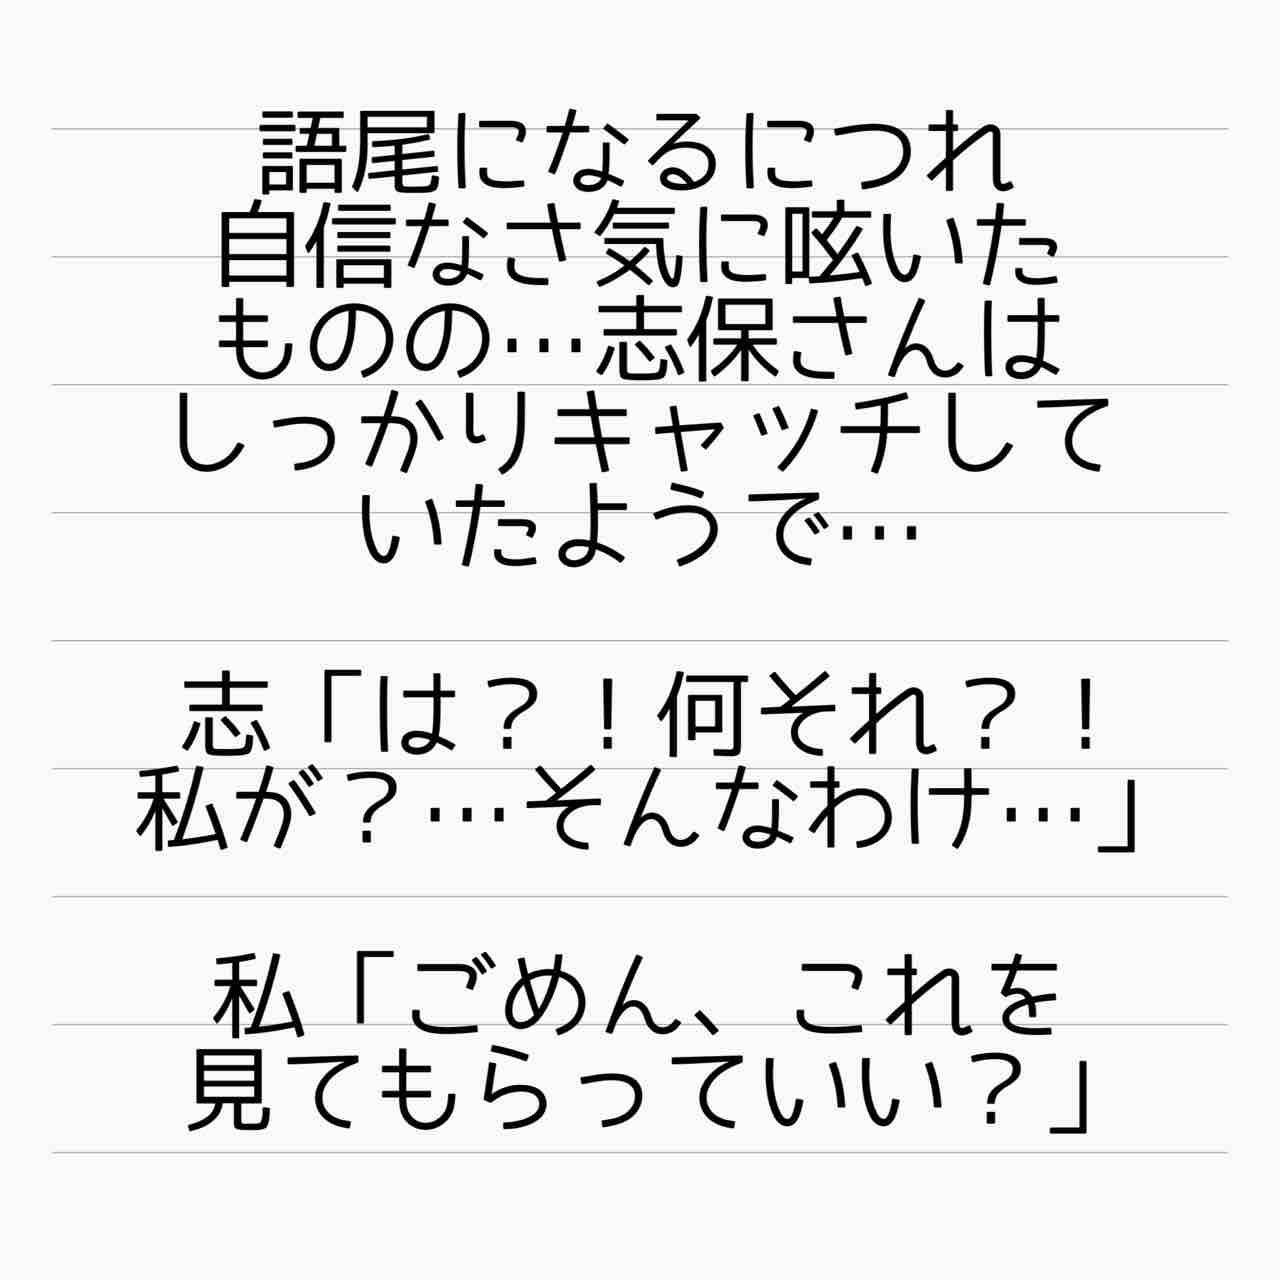 語尾になるにつれ
自信なさ気に呟いた
ものの…志保さんは
しっかりキャッチして
いたようで…
志「は？！何それ？！
私が？…そんなわけ…」
私「ごめん、これを
見てもらっていい？」